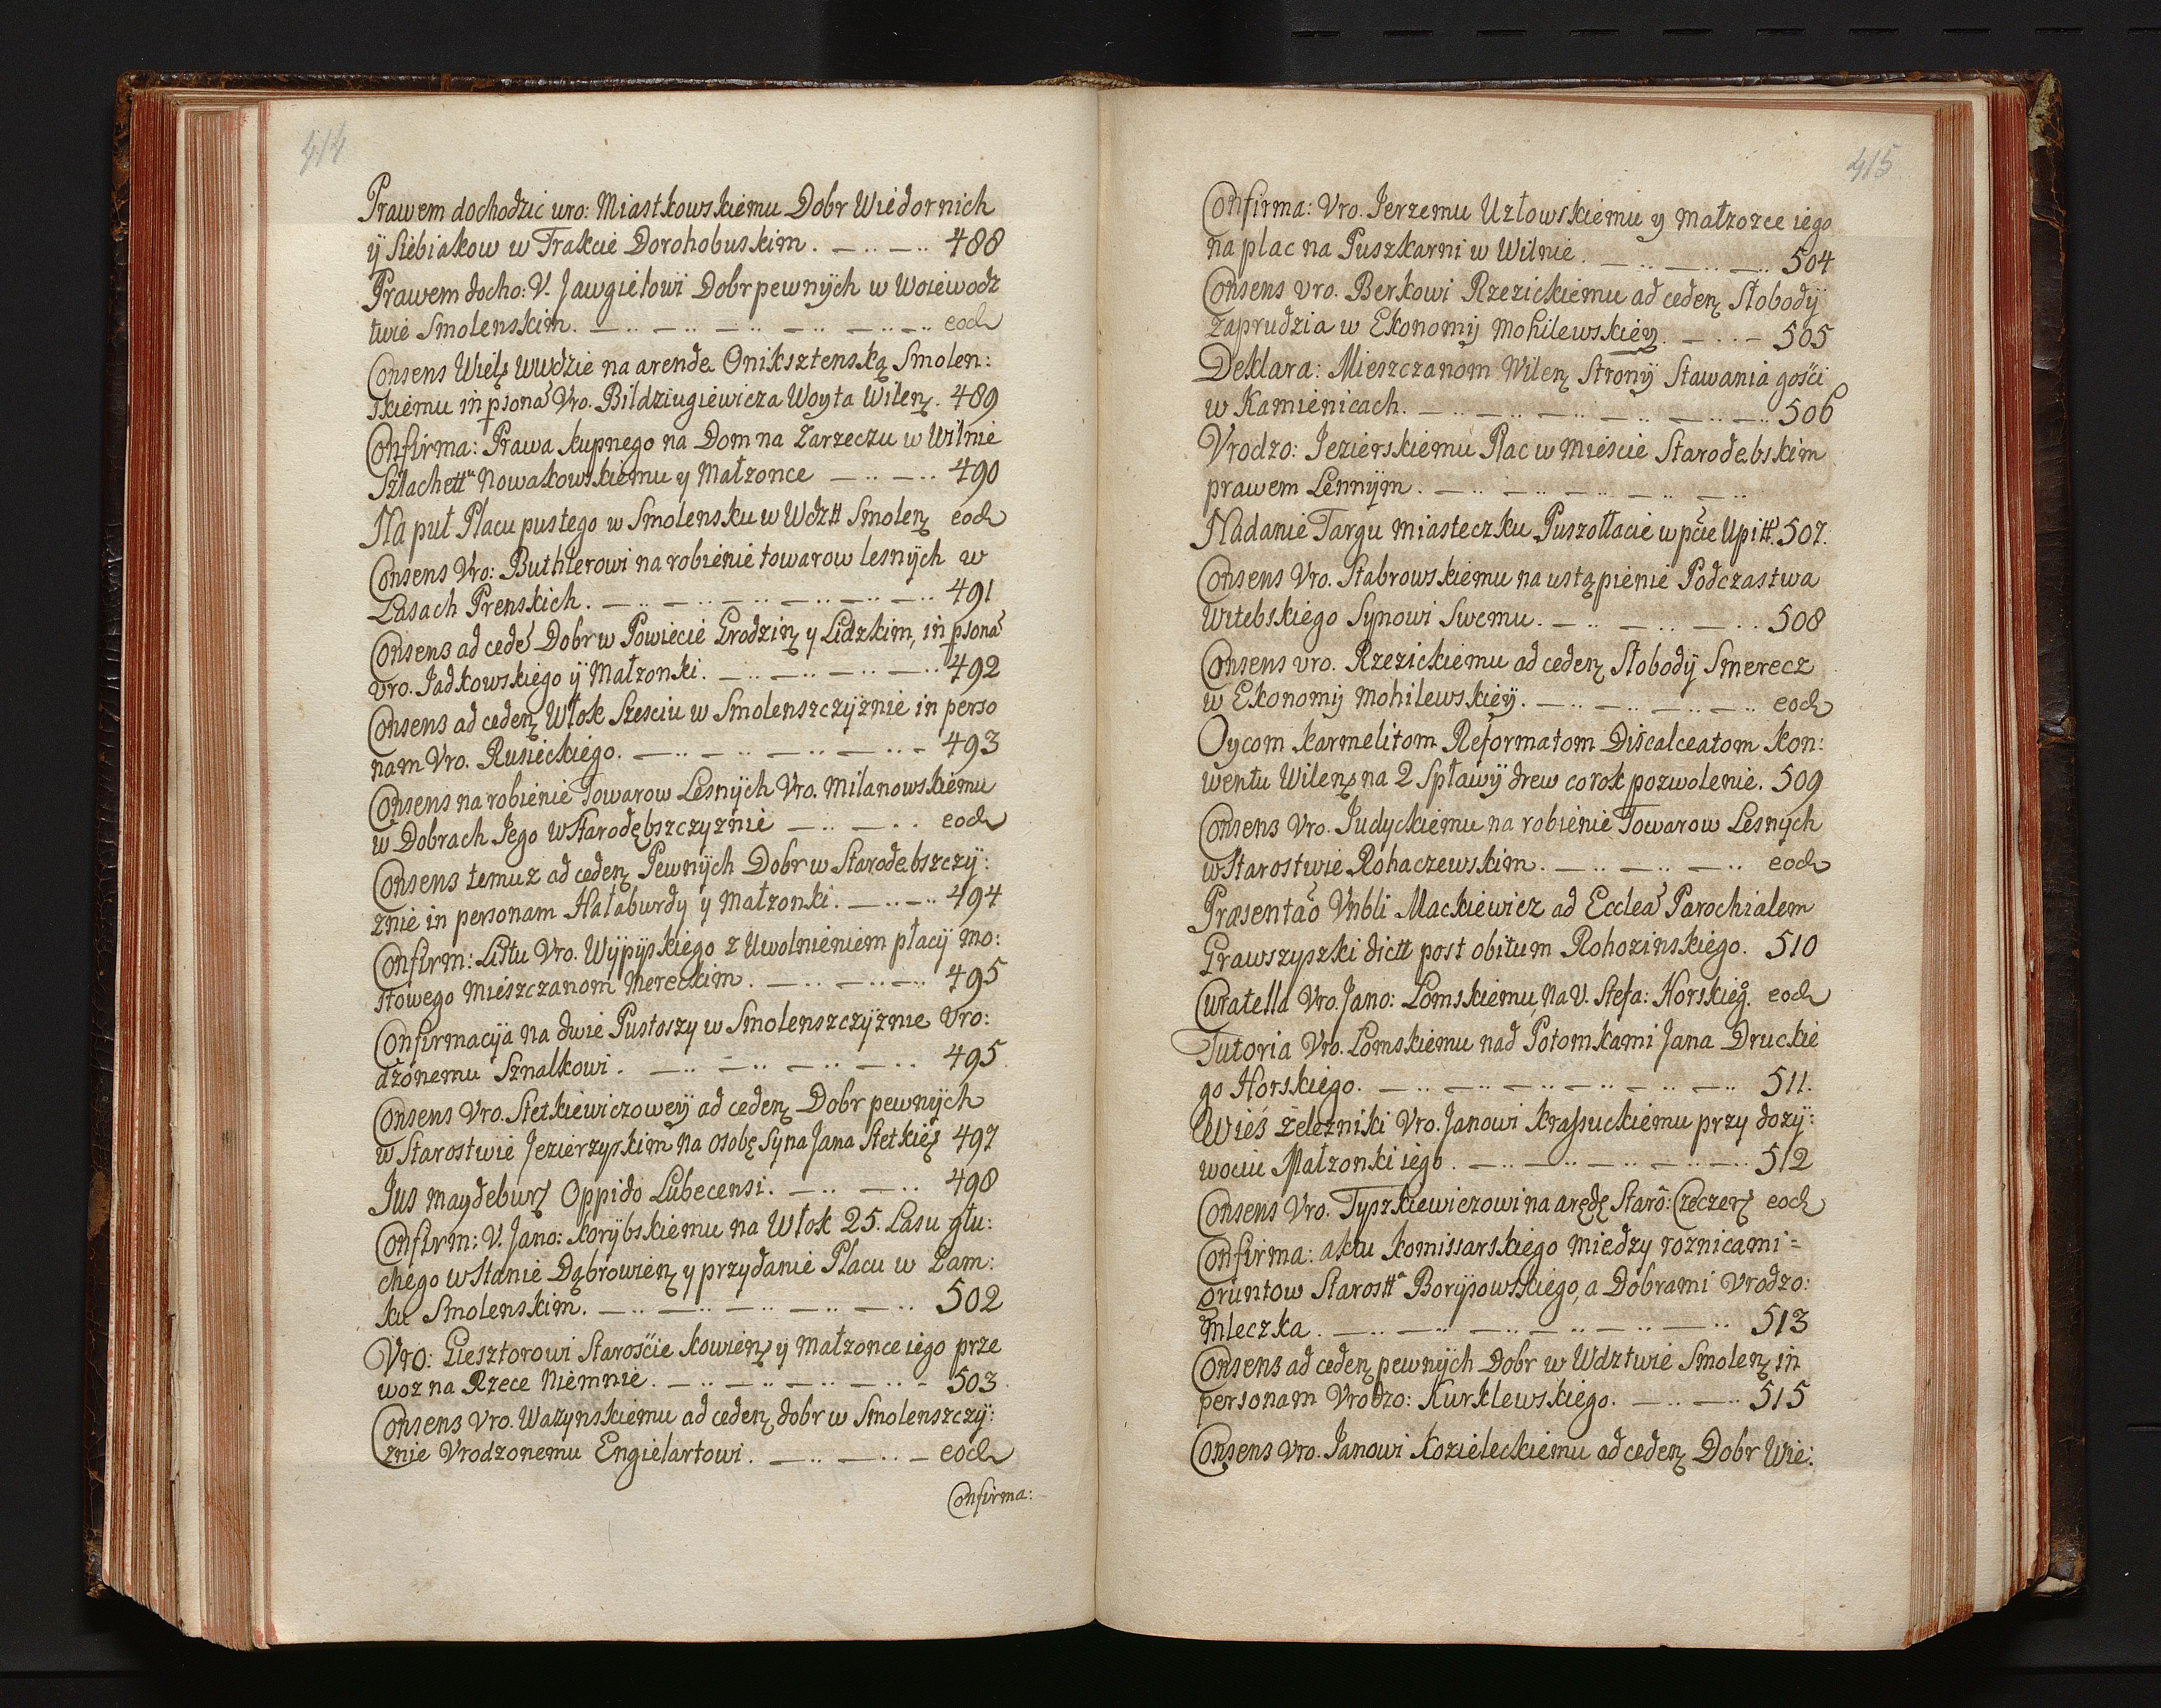 414
Prawem dochodzic uro: Miastkowskiemu Dobr Wiedornich
ÿ Siebiakow w Trakcie Dorohobuskim. — .. — .. 488
Prawem docho: V. Jawgiełowi Dobr pewnÿch w Woiewodz
twie Smolenskim. — .. — .. — .. — .. — .. — .. eod
Consens Wielę wwdzie na arendę Oniksztenską Smolen:
skiemu in psona Vro. Bildziugiewicza Woyta Wilenȝ. 489
Confirma: Prawa kupnego na Dom na Zarzeczu w Wilnie
Szlachett Nowakowskiemu y Małzonce — .. — .. 490
Na puł Placu pustego w Smolensku w Wdztt Smolenȝ eod
Consens Vro: Buthlerowi na robienie towarow lesnÿch w
Lasach Prenskich. — .. — .. — .. — .. — .. — .. 491
Consens ad cede Dobr w Powiecie Grodzinȝ y Lidzkim, in psona
vro. Jadkowskiego ÿ Małzonki. — .. — .. — .. — .. 492
Consens ad cedenȝ Włok Szesciu w Smolenszczyznie in perso
nam Vro. Rusieckiego. — .. — .. — .. — .. - 493
Consens na robienie Towarow Lesnÿch Vro. Milanowskiemu
w Dobrach Jego w Starodębszczyznie — .. — .. eod
Consens temuz ad cedenȝ Pewnÿch Dobr w Starodebszczÿ:
znie in personam Hałaburdy y Małzonki. — .. — .. 494
Confirm: Listu Vro. Wÿpÿskiego z Uwolnieniem płacÿ mo:
stowego Mieszczanom Mereckim. — .. — .. — .. 495
Confirmacÿa na dwie Pustoszy w Smolenszczÿznie Vro:
dzonemu Sznalkowi. — .. — .. — .. — .. 495
Consens Vro. Stetkiewiczoweÿ ad cedenȝ Dobr pewnÿch
w Starostwie Jezierzyskim na osobę Syna Jana Stetkieȝ 497
Jus magdeburȝ Oppido Lubecensi. — .. — .. 498
Confirm: V. Jano: Korÿbskiemu na Włok 25. Lasu głu:
chego w Stanie Dąbrowienȝ y przydanie Placu w Zam:
ku Smolenskim. — .. — .. — .. — .. — .. 502
Vro: Giesztorowi Staroscie Kowienȝ y Małzonce iego prze
woz na Rzece Niemnie. — .. — .. — .. — .. - 503
Consens Vro. Wazynskiemu ad cedenȝ dobr w Smolenszczÿ:
znie Vrodzonemu Engielartowi. — .. — .. — eod
Confirma:
415
Confirma: Vro. Jerzemu Uzłowskiemu y Małzoce iego
na plac na Puszkarni w Wilnie. — .. — .. — .. 504
Consens vro. Berkowi Rzezickiemu ad cedenȝ Słobodÿ
Zaprudzia w Ekonomÿ Mohilewskieÿ. — .. — 505
Deklara: Mieszczanom Wilenȝ Stronÿ Stawania gości
w Kamienicach. — .. — .. — .. — .. — .. — .. 506
Vrodzo: Jezierskiemu Plac w Mieście Starodebskim
prawem Lennÿm. — .. — .. — .. — .. — .. — ..
Nadanie Targu miasteczku Puszołtacie w pcie Upitt. 507.
Consens Vro. Stabrowskiemu na ustąpienie Podczastwa
Witebskiego Synowi Swemu. — .. — .. — .. 508
Consens vro. Rzezickiemu ad cedenȝ Słobodÿ Smerecz
w Ekonomÿ Mohilewskieÿ. — .. — .. — .. — .. eod
Oycom Karmelitom Reformatom Discalceatom Kon:
wentu Wilenȝ na 2 Spławÿ drew co rok pozwolenie. 509
Consens Vro. Judyckiemu na robienie Towarow Lesnÿch
w Starostwie Rohaczewskim. — .. — .. — .. eod
Præsentao Vnbli Mackiewicz ad Ecclea Parochialem
Grawszyszki dictt post obitum Rohozinskiego. 510
Curatella Vro. Jano: Lomskiemu, Na V. Stefa: Horskieg. eod
Tutoria Vro. Lomskiemu nad Potomkami Jana Druckie
go Horskiego. — .. — .. — .. — .. — .. — .. 511.
Wieś Zelezniki Vro. Janowi Krassuckiemu przy dozÿ:
wociu Małzonki iego. — .. — .. — .. — .. — .. 512
Consens Vro. Tyszkiewiczowi na arędę Staro: Czeczerȝ eod
Confirma: aktu Komissarskiego miedzy roznicami =
gruntow Starostt Borysowskiego, a Dobrami Vrodzo:
Mleczka. — .. — .. — .. — .. — .. — .. 513
Consens ad cedenȝ pewnÿch Dobr w Wdztwie Smolenȝ in
personam Vrodzo: Kurklewskiego. — .. — .. 515
Consens vro. Janowi Kozieleckiemu ad cedenȝ Dobr Wie: